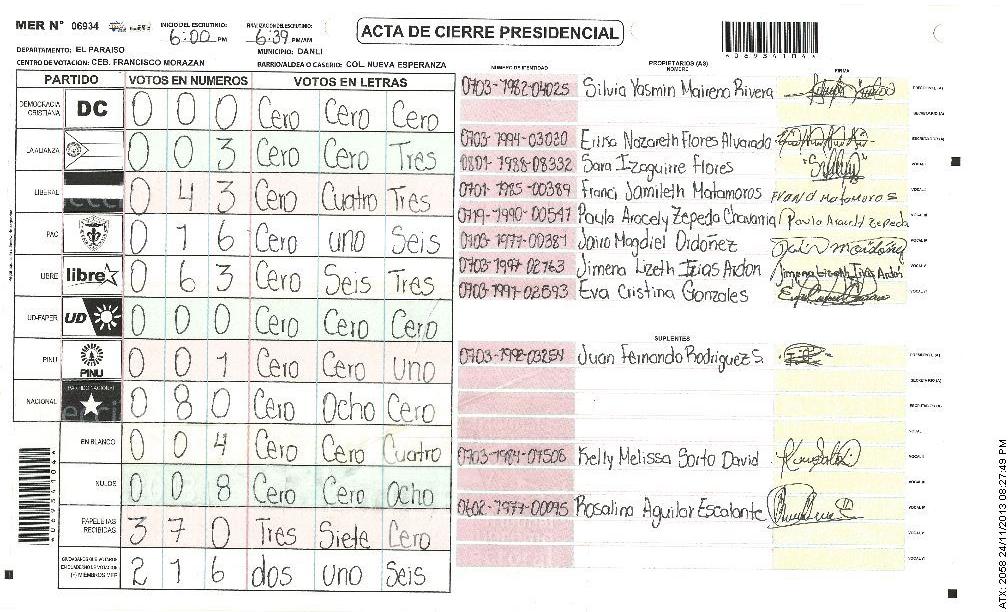 MER N° 06934
INICIO DEL ESCRUTINIO: 6:00 PM
FINALIZACION DEL ESCRUTINIO: 6:39 PM/AM
ACTA DE CIERRE PRESIDENCIAL
A06934104A
DEPARTAMENTO: EL PARAISO
MUNICIPIO: DANLI
CENTRO DE VOTACION: CEB. FRANCISCO MORAZAN
BARRIO/ALDEA O CASERIO: COL NUEVA ESPERANZA
PARTIDO VOTOS EN NUMEROS VOTOS EN LETRAS
DEMOCRACIA CRISTIANA DC 0 0 0 Cero Cero Cero
LA ALIANZA 0 0 3 Cero Cero Tres
LIBERAL 0 4 3 Cero Cuatro Tres
PAC 0 1 6 Cero uno Seis
LIBRE libre 0 6 3 Cero Seis Tres
UD-FAPER UD 0 0 0 Cero Cero Cero
PINU PINU 0 0 1 Cero Cero Uno
NACIONAL PARTIDO NACIONAL 0 8 0 Cero Ocho Cero
EN BLANCO 0 0 4 Cero Cero Cuatro
NULOS 0 0 8 Cero Cero Ocho
PAPELETAS RECIBIDAS 3 7 0 Tres Siete Cero
CIUDADANOS QUE VOTARON EN CUADERNO DE VOTACION (+) MIEMBROS MER 2 1 6 dos uno Seis
A06934104A
NUMERO DE IDENTIDAD PROPIETARIOS (AS) NOMBRE FIRMA
0703-1982-04025 Silvia Yasmin Maireno Rivera PRESIDENTE (A)
SECRETARIO (A)
0703-1994-03030 Erika Nazareth Flores Alvarado ESCRUTADOR (A)
0801-1988-08332 Sara Izaguirre Flores VOCAL I
0701-1985-00389 Franci Jamileth Matamoros Franci Matamoros VOCAL II
0719-1990-00547 Paula Aracely Zepeda Chavarria Paula Aracely Zepeda VOCAL III
0703-1977-00381 Jairo Magdiel Ordoñez VOCAL IV
0703-1997-02763 Jimena Lizeth Irias Ardon Jimena Lizeth Irias Ardón VOCAL V
0703-1991-02593 Eva Cristina Gonzales VOCAL VI
SUPLENTES
0703-1992-03254 Juan Fernando Rodriguez S. PRESIDENTE (A)
SECRETARIO (A)
ESCRUTADOR (A)
VOCAL I
0703-1984-07506 Kelly Melissa Sorto David VOCAL II
VOCAL III
0602-1977-00095 Rosalina Aguilar Escalante VOCAL IV
VOCAL V
VOCAL VI
ATX: 2058 24/11/2013 08:27:49 PM